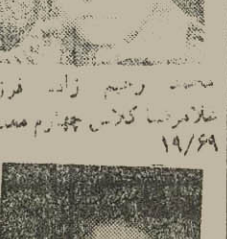 محمد رحیم زاده فرز
غلامرضا کلاس چهارم مد
۱۹/۶۹